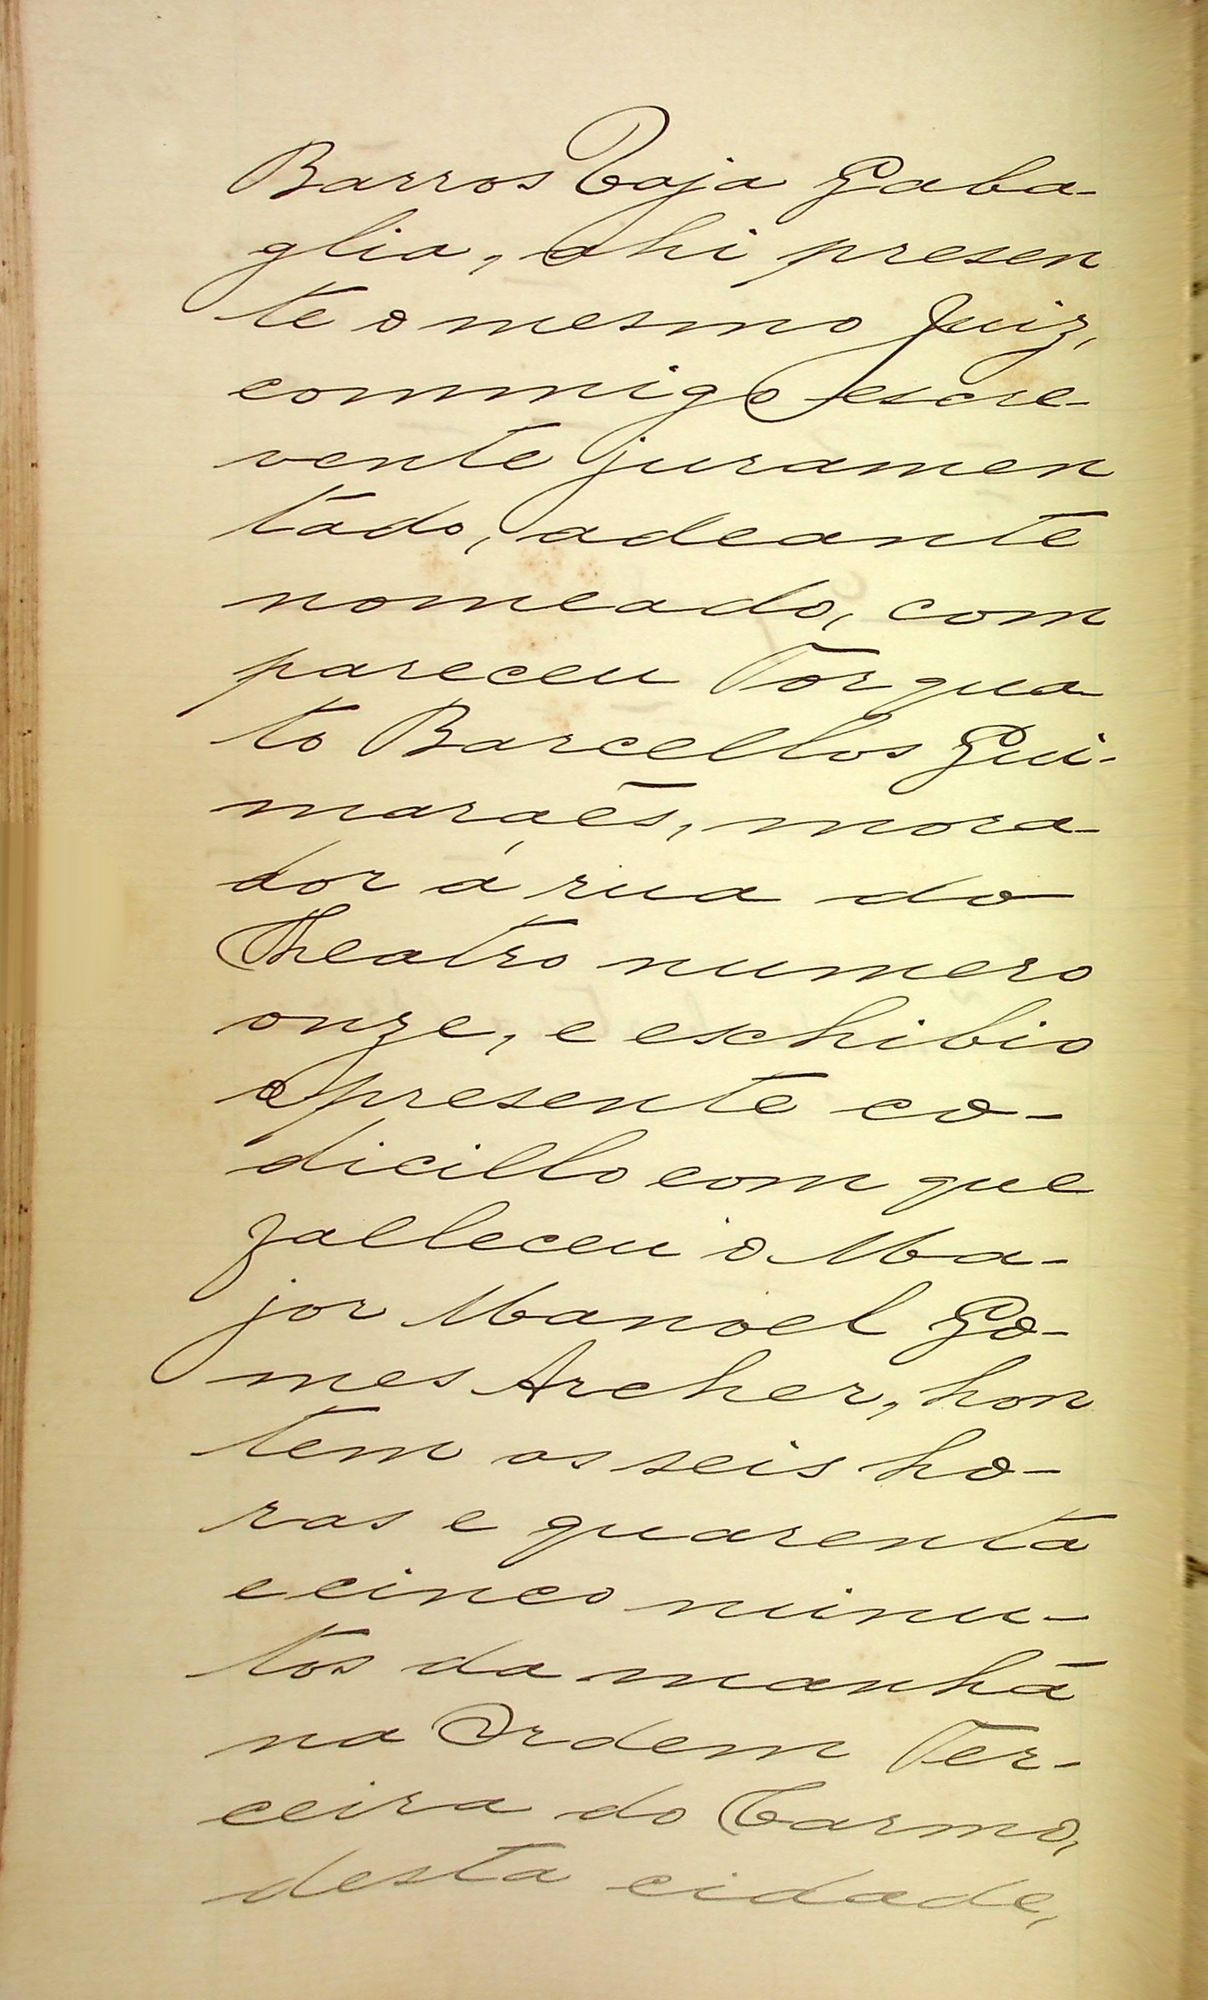 Barros Raja Gaba-
glia, ahi presen
te o mesmo Juiz,
commigo escre-
vente juramen
tado, adeante
nomeado, com
pareceu Torqua
to Barcellos Gui-
maraẽs, mora-
dor á rua do
Theatro numero
onze, e exhibio
o presente co-
dicillo com que
falleceu o Ma-
jor Manoel Go-
mes Archer, hon
tem as seis ho-
ras e quarenta
e cinco minu-
tos da manhã
na Ordem Ter-
ceira do Carmo,
desta cidade,